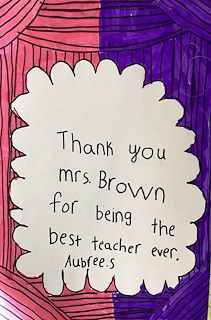 Thank you
mrs. Brown
for being the
best teacher ever.
Aubree.S